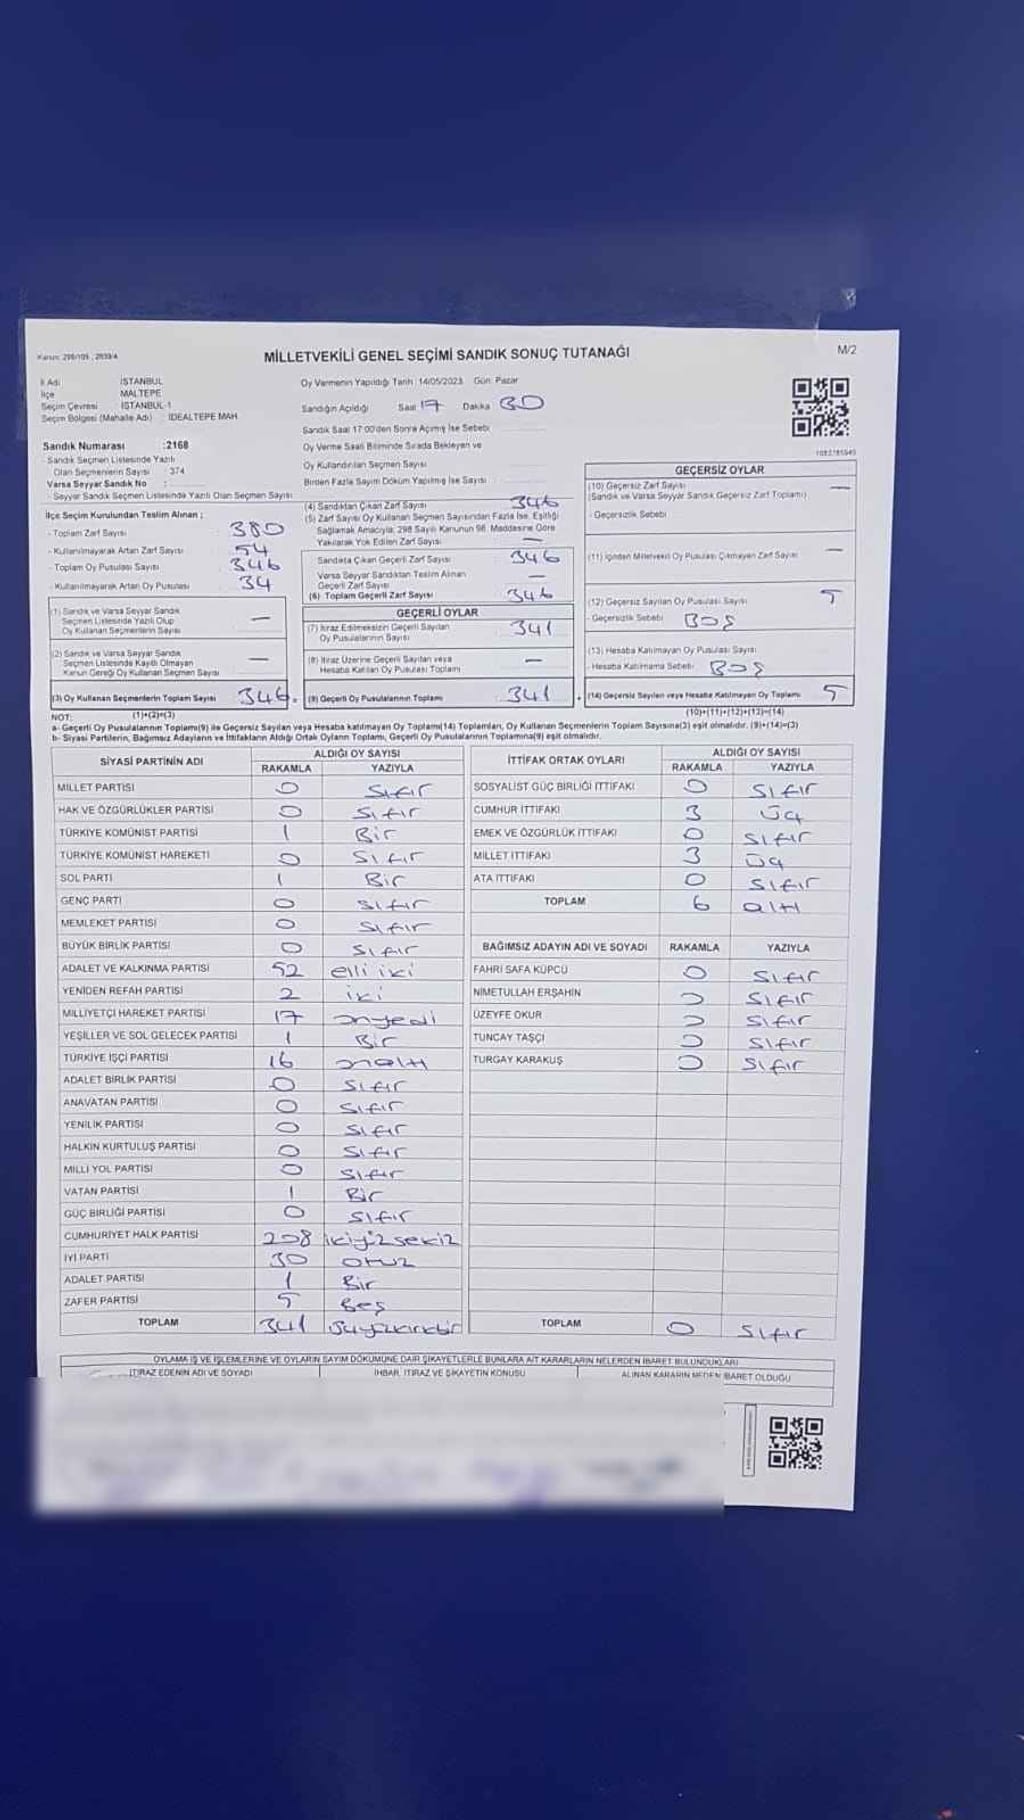 Kanun: 298/105, 2839/4
MİLLETVEKİLİ GENEL SEÇİMİ SANDIK SONUÇ TUTANAĞI
M/2
İl Adı İSTANBUL
İlçe MALTEPE
Seçim Çevresi İSTANBUL-1
Seçim Bölgesi (Mahalle Adı) : İDEALTEPE MAH
Oy Vermenin Yapıldığı Tarih: 14/05/2023 Gün: Pazar
Sandığın Açıldığı Saat 17 Dakika 30
Sandık Saat 17:00'den Sonra Açımış İse Sebebi
Sandık Numarası :2168
Sandık Seçmen Listesinde Yazılı
Olan Seçmenlerin Sayısı : 374
Varsa Seyyar Sandık No :
Seyyar Sandık Seçmen Listesinde Yazılı Olan Seçmen Sayısı
Oy Verme Saati Bitiminde Sırada Bekleyen ve
Oy Kullandırılan Seçmen Sayısı
Birden Fazla Sayım Döküm Yapılmış İse Sayısı
İlçe Seçim Kurulundan Teslim Alınan ;
- Toplam Zarf Sayısı 380
- Kullanılmayarak Artan Zarf Sayısı 54
- Toplam Oy Pusulası Sayısı 346
- Kullanılmayarak Artan Oy Pusulası 34
(1) Sandık ve Varsa Seyyar Sandık
Seçmen Listesinde Yazılı Olup
Oy Kullanan Seçmenlerin Sayısı —
(2) Sandık ve Varsa Seyyar Sandık
Seçmen Listesinde Kayıtlı Olmayan
Kanun Gereği Oy Kullanan Seçmen Sayısı —
(3) Oy Kullanan Seçmenlerin Toplam Sayısı 346
(1)+(2)=(3)
(4) Sandıktan Çıkan Zarf Sayısı 346
(5) Zarf Sayısı Oy Kullanan Seçmen Sayısından Fazla İse, Eşitliği
Sağlamak Amacıyla, 298 Sayılı Kanunun 98. Maddesine Göre
Yakılarak Yok Edilen Zarf Sayısı —
Sandıkta Çıkan Geçerli Zarf Sayısı 346
Varsa Seyyar Sandıktan Teslim Alınan
Geçerli Zarf Sayısı —
(6) Toplam Geçerli Zarf Sayısı 346
GEÇERLİ OYLAR
(7) İtiraz Edilmeksizin Geçerli Sayılan
Oy Pusulalarının Sayısı 341
(8) İtiraz Üzerine Geçerli Sayılan veya
Hesaba Katılan Oy Pusulası Toplamı —
(9) Geçerli Oy Pusulalarının Toplamı 341
GEÇERSİZ OYLAR
(10) Geçersiz Zarf Sayısı —
(Sandık ve Varsa Seyyar Sandık Geçersiz Zarf Toplamı)
- Geçersizlik Sebebi
(11) İçinden Milletvekili Oy Pusulası Çıkmayan Zarf Sayısı —
(12) Geçersiz Sayılan Oy Pusulası Sayısı 5
- Geçersizlik Sebebi BOŞ
(13) Hesaba Katılmayan Oy Pusulası Sayısı
- Hesaba Katılmama Sebebi BOŞ
(14) Geçersiz Sayılan veya Hesaba Katılmayan Oy Toplamı 5
(10)+(11)+(12)+(13)=(14)
NOT:
a- Geçerli Oy Pusulalarının Toplamı(9) ile Geçersiz Sayılan veya Hesaba katılmayan Oy Toplamı(14) Toplamları, Oy Kullanan Seçmenlerin Toplam Sayısına(3) eşit olmalıdır. (9)+(14)=(3)
b- Siyasi Partilerin, Bağımsız Adayların ve İttifakların Aldığı Ortak Oyların Toplamı, Geçerli Oy Pusulalarının Toplamına(9) eşit olmalıdır.
SİYASİ PARTİNİN ADI ALDIĞI OY SAYISI
RAKAMLA YAZIYLA
MİLLET PARTİSİ 0 Sıfır
HAK VE ÖZGÜRLÜKLER PARTİSİ 0 Sıfır
TÜRKİYE KOMÜNİST PARTİSİ 1 Bir
TÜRKİYE KOMÜNİST HAREKETİ 0 Sıfır
SOL PARTİ 1 Bir
GENÇ PARTİ 0 Sıfır
MEMLEKET PARTİSİ 0 Sıfır
BÜYÜK BİRLİK PARTİSİ 0 Sıfır
ADALET VE KALKINMA PARTİSİ 52 elli iki
YENİDEN REFAH PARTİSİ 2 iki
MİLLİYETÇİ HAREKET PARTİSİ 17 onyedi
YEŞİLLER VE SOL GELECEK PARTİSİ 1 Bir
TÜRKİYE İŞÇİ PARTİSİ 16 onaltı
ADALET BİRLİK PARTİSİ 0 Sıfır
ANAVATAN PARTİSİ 0 Sıfır
YENİLİK PARTİSİ 0 Sıfır
HALKIN KURTULUŞ PARTİSİ 0 Sıfır
MİLLİ YOL PARTİSİ 0 Sıfır
VATAN PARTİSİ 1 Bir
GÜÇ BİRLİĞİ PARTİSİ 0 Sıfır
CUMHURİYET HALK PARTİSİ 208 ikiyüzsekiz
İYİ PARTİ 30 otuz
ADALET PARTİSİ 1 Bir
ZAFER PARTİSİ 5 Beş
TOPLAM 341 üçyüzkırkbir
İTTİFAK ORTAK OYLARI ALDIĞI OY SAYISI
RAKAMLA YAZIYLA
SOSYALİST GÜÇ BİRLİĞİ İTTİFAKI 0 Sıfır
CUMHUR İTTİFAKI 3 üç
EMEK VE ÖZGÜRLÜK İTTİFAKI 0 Sıfır
MİLLET İTTİFAKI 3 üç
ATA İTTİFAKI 0 Sıfır
TOPLAM 6 altı
BAĞIMSIZ ADAYIN ADI VE SOYADI RAKAMLA YAZIYLA
FAHRİ SAFA KÜPCÜ 0 Sıfır
NİMETULLAH ERŞAHİN 0 Sıfır
ÜZEYFE OKUR 0 Sıfır
TUNCAY TAŞÇI 0 Sıfır
TURGAY KARAKUŞ 0 Sıfır
TOPLAM 0 Sıfır
OYLAMA İŞ VE İŞLEMLERİNE VE OYLARIN SAYIM DÖKÜMÜNE DAİR ŞİKAYETLERLE BUNLARA AİT KARARLARIN NELERDEN İBARET BULUNDUKLARI
İTİRAZ EDENİN ADI VE SOYADI İHBAR, İTİRAZ VE ŞİKAYETİN KONUSU ALINAN KARARIN NEDEN İBARET OLDUĞU